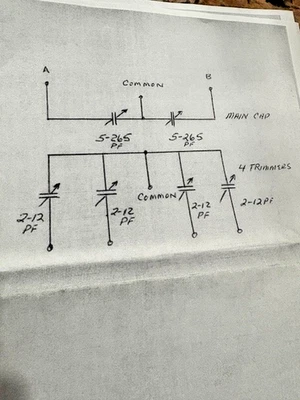 A
COMMON
B
MAIN CAP
5-265
PF
5-265
PF
4 TRIMMERS
COMMON
2-12
PF
2-12
PF
2-12
PF
2-12PF